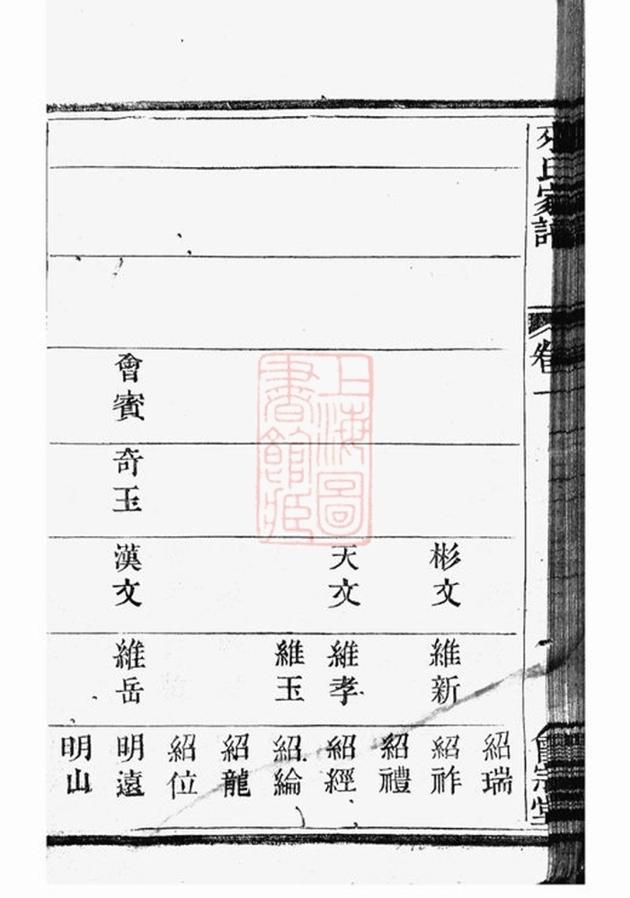 氏家譜
卷一
會宗堂
紹瑞
彬文 維新 紹祚
紹禮
天文 維孝 紹經
維玉 紹綸
紹龍
紹位
會賓 奇玉 漢文 維岳 明遠
明山
上海圖
書館藏